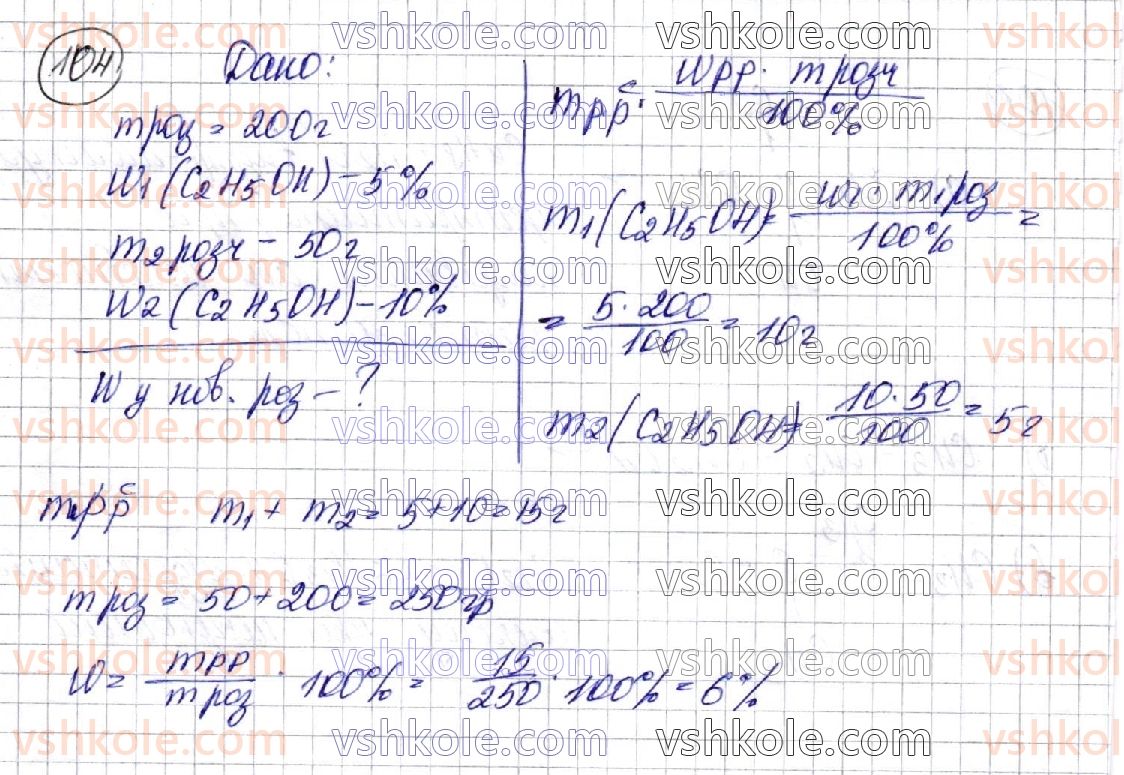 104 Дано:
mроз = 200г
W1(C2H5OH) - 5%
m2 розч - 50г
W2(C2H5OH) - 10%
W у нов. роз - ?
mрр = Wрр · mрозч / 100%
m1(C2H5OH) = W1 · m1роз / 100% =
= 5 · 200 / 100 = 10г
m2(C2H5OH) = 10 · 50 / 100 = 5г
mрр = m1 + m2 = 5 + 10 = 15г
mроз = 50 + 200 = 250гр
W = mрр / mроз · 100% = 15 / 250 · 100% = 6%
vshkole.com